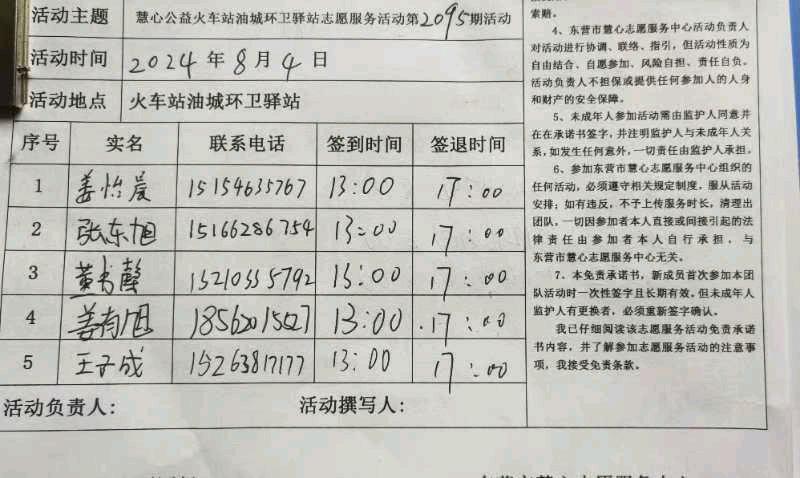 活动主题 慧心公益火车站油城环卫驿站志愿服务活动第2095期活动
活动时间 2024年8月4日
活动地点 火车站油城环卫驿站
序号 实名 联系电话 签到时间 签退时间
1 姜怡晨 15154635767 13:00 17:00
2 张东旭 15166286754 13:00 17:00
3 黄书馨 13210335792 13:00 17:00
4 姜有旭 18562015527 13:00 17:00
5 王子成 15263817177 13:00 17:00
活动负责人: 活动撰写人:
索赔。
4、东营市慧心志愿服务中心活动负责人
对活动进行协调、联络、指引，但活动性质为
自由结合、自愿参加、风险自担、责任自负。
活动负责人不担保或提供任何参加人的人身
和财产的安全保障。
5、未成年人参加活动需由监护人同意并
在在承诺书签字，并注明监护人与未成年人关
系，如发生任何意外，一切责任由监护人承担。
6、参加东营市慧心志愿服务中心组织的
任何活动，必须遵守相关规定制度，服从活动
安排；如有违反，不予上传服务时长，清理出
团队，一切因参加者本人直接或间接引起的法
律责任由参加者本人自行承担，与
东营市慧心志愿服务中心无关。
7、本免责承诺书，新成员首次参加本团
队活动时一次性签字且长期有效。但未成年人
监护人有更换者，必须重新签字确认。
我已仔细阅读该志愿服务活动免责承诺
书内容，并了解参加志愿服务活动的注意事
项，我接受免责条款。